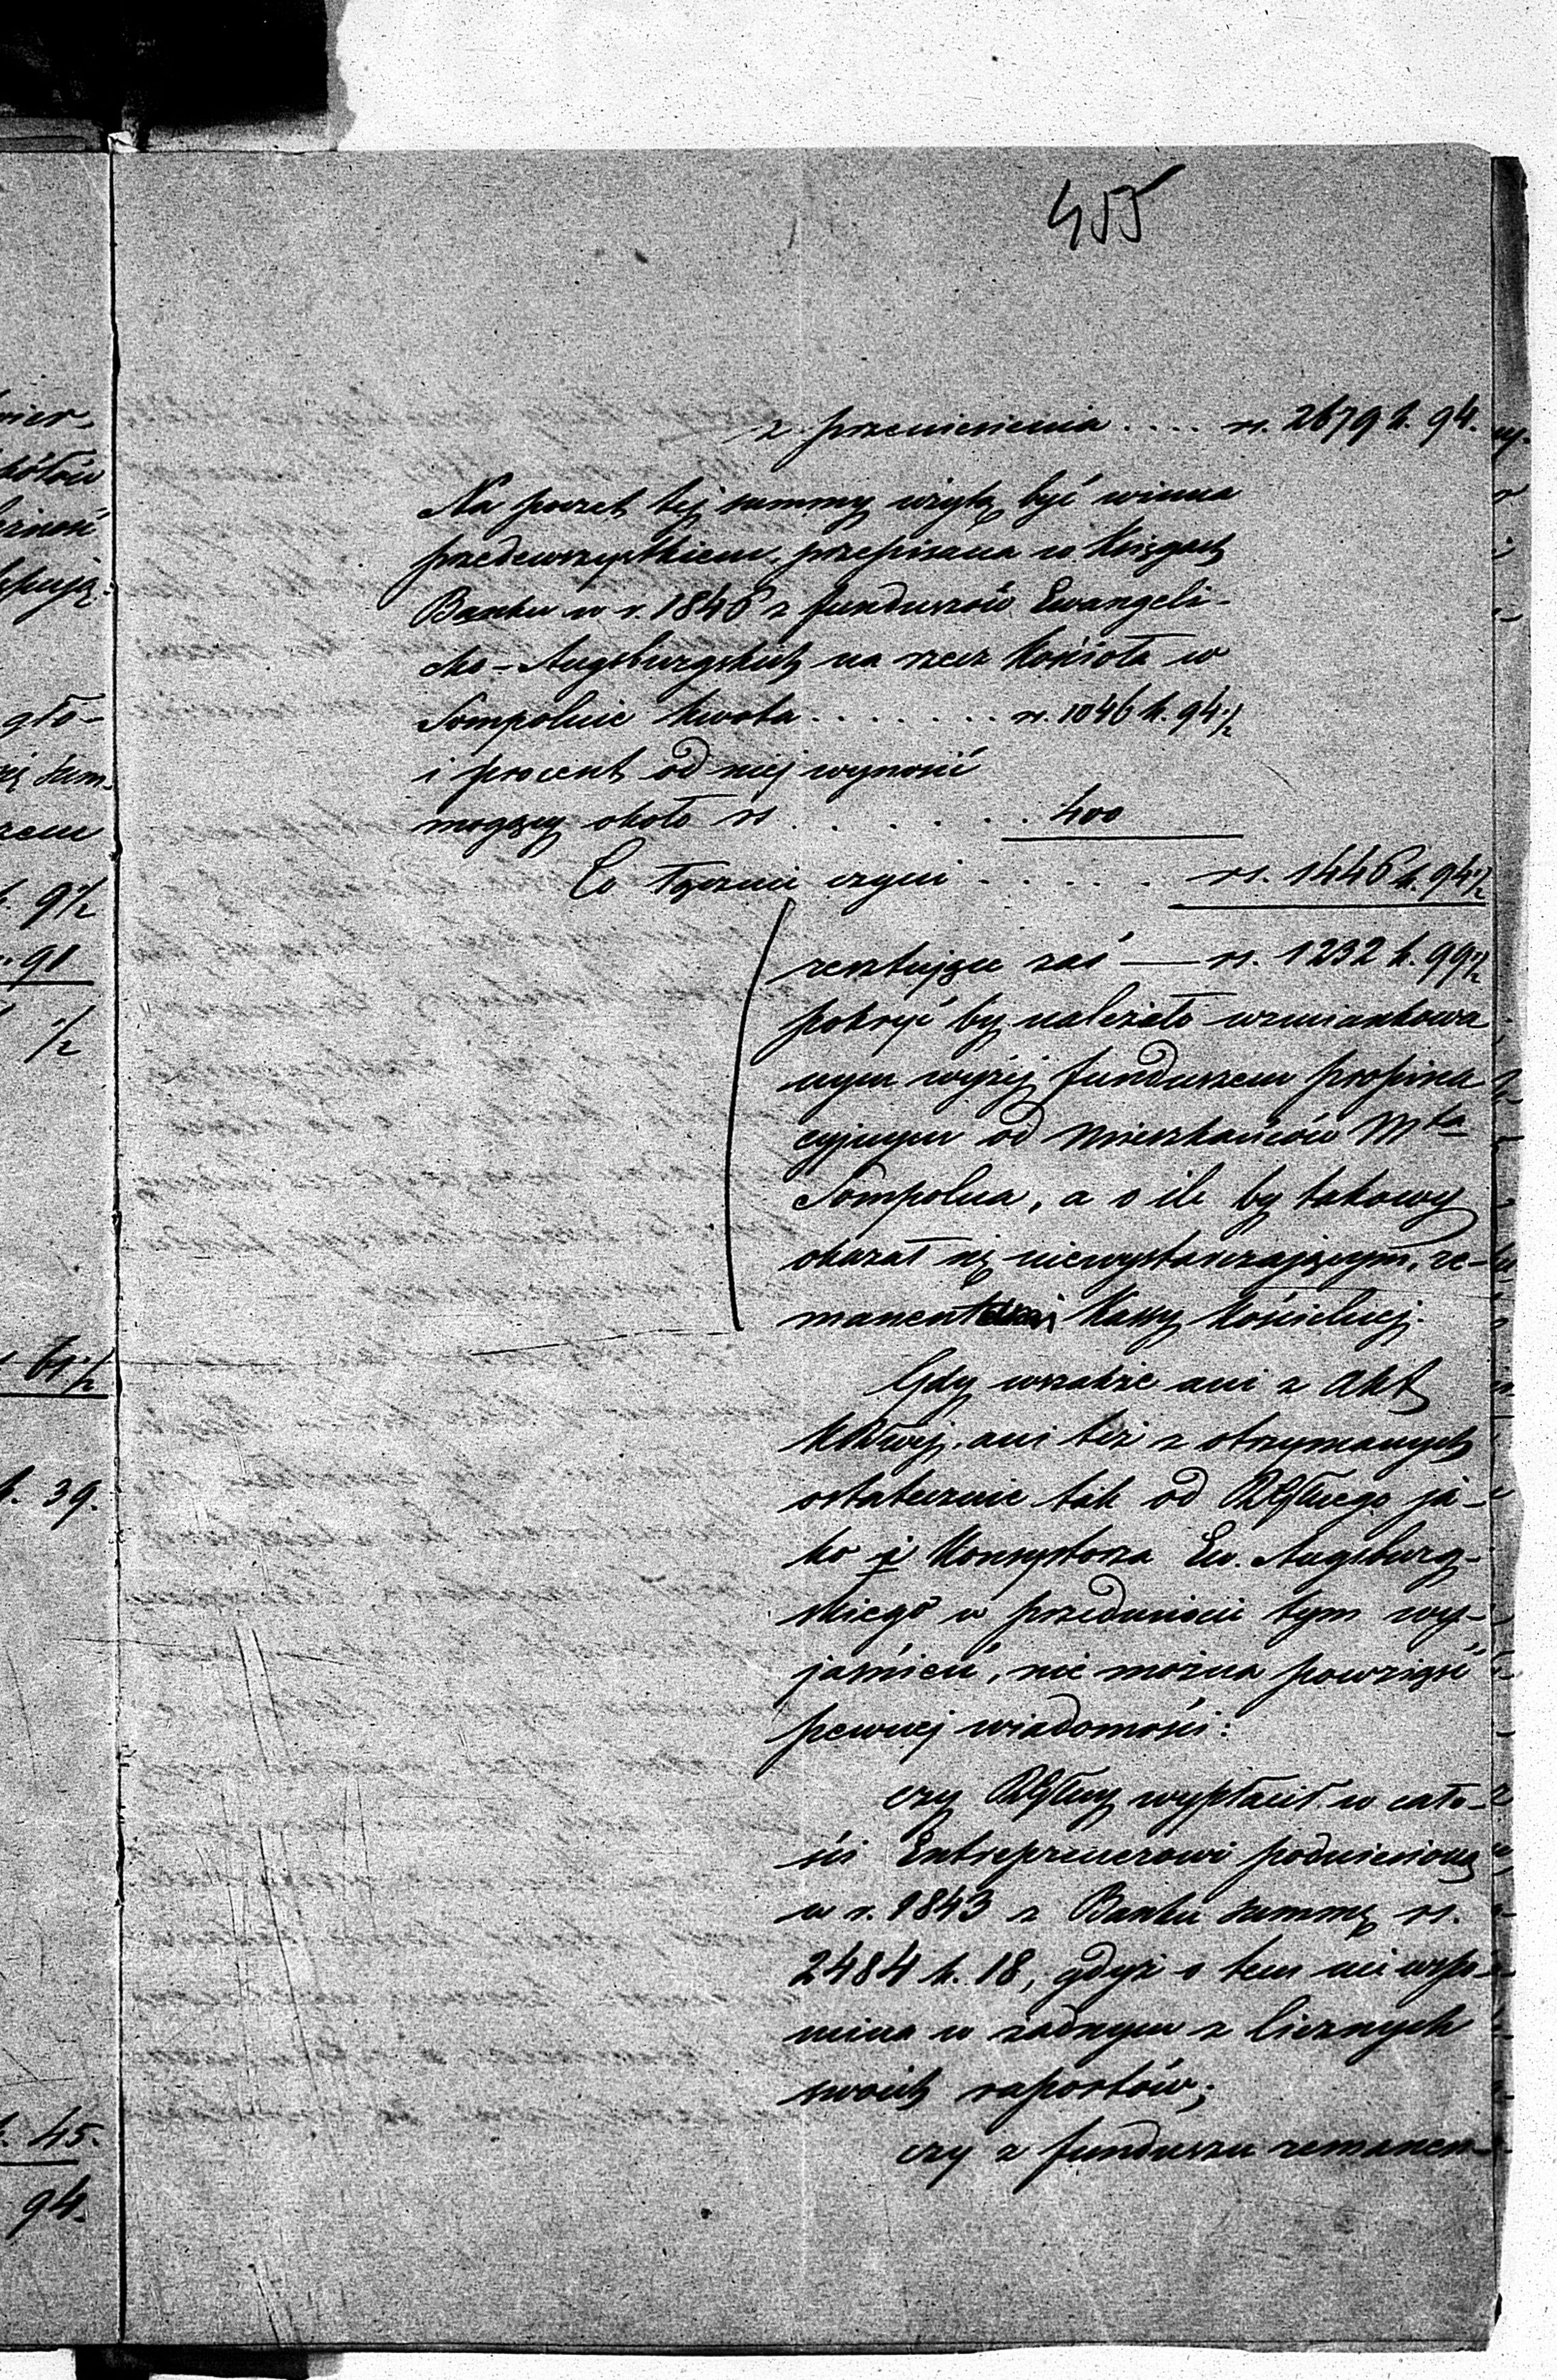 455
z przeniesienia .... rs. 2679 k. 94.
Na poczet tej summy użytą być winna
przedewszystkiem, przepisana w księgach
Banku w r. 1846 z funduszów Ewangeli-
cko-Augsburgskich na rzecz kościoła w
Sompolnie kwota ....... rs. 1046 k. 94 1/2
i procent od niej wynosić
mogący około rs ....... 400
Co łącznie czyni ..... rs. 1446 k. 94 1/2
resztujące zaś — rs. 1232 k. 99 1/2
pokryć by należało wzmiankowa
nym wyżej funduszem propina
cyjnym od mieszkańców Mta
Sompolna, a o ile by takowy
okazał się niewystarczającym, re-
manentem Kassy kościelnej.
Gdy wszakże ani z Akt
KRswej, ani też z otrzymanych
ostatecznie tak od RGflnego ja-
ko i Konsystorza Ew. Augsburg-
skiego w przedmiocie tym wy-
jaśnień, nie można powziąść
pewnej wiadomości:
czy RGflny wypłacił w cało-
ści Entreprenerowi podniesioną
w r. 1843 z Banku summę rs.
2484 k. 18, gdyż o tem nie wspo-
mina w żadnym z licznych
swoich raportów;
czy z funduszu remanen-